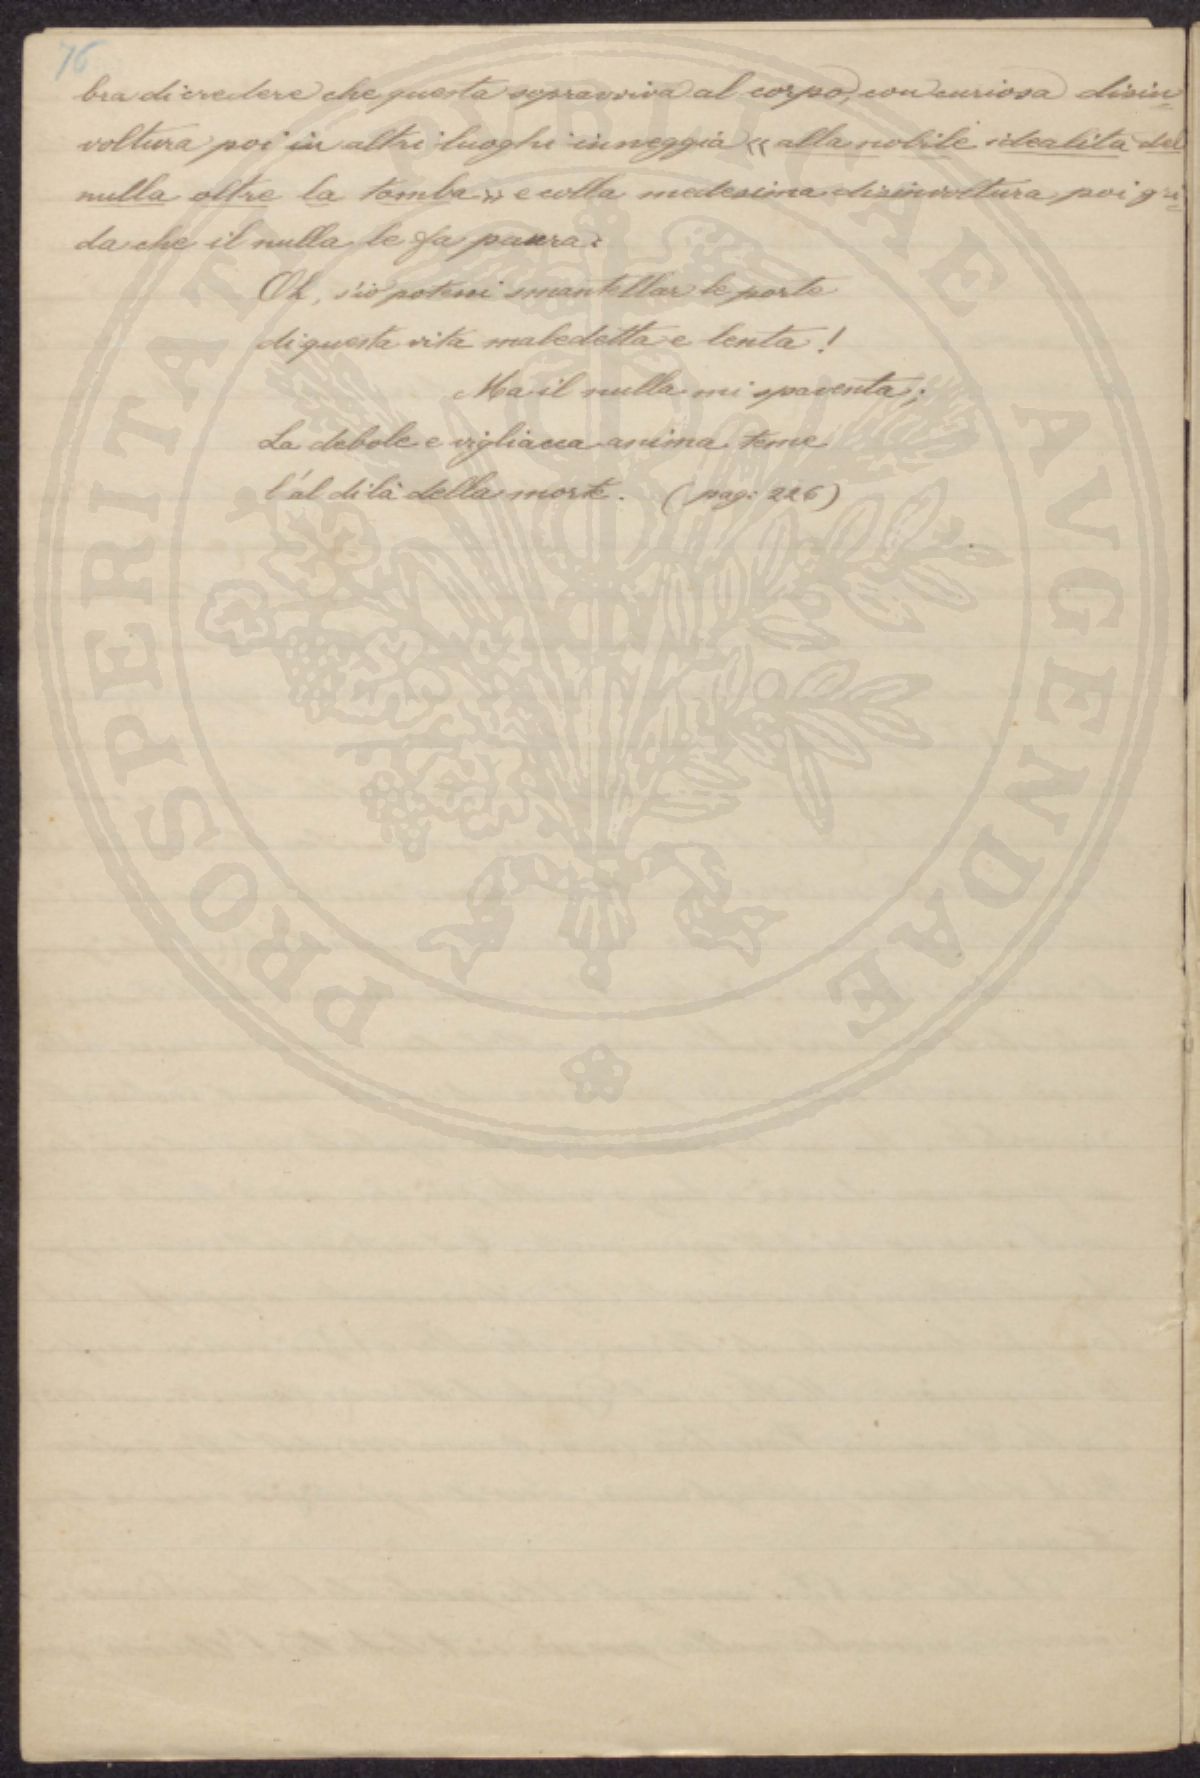 76
bra di credere che questa sopravviva al corpo, con curiosa disin-
voltura poi in altri luoghi inneggia « alla nobile idealità del
nulla oltre la tomba » e colla medesima disinvoltura poi gri-
da che il nulla le fa paura:
Oh, s'io potessi smantellar le porte
di questa vita maledetta e lenta!
Ma il nulla mi spaventa;
La debole e vigliacca anima teme
l'al di là della morte. (pag: 226)
PROSPERITATI PVBLICAE AVGENDAE